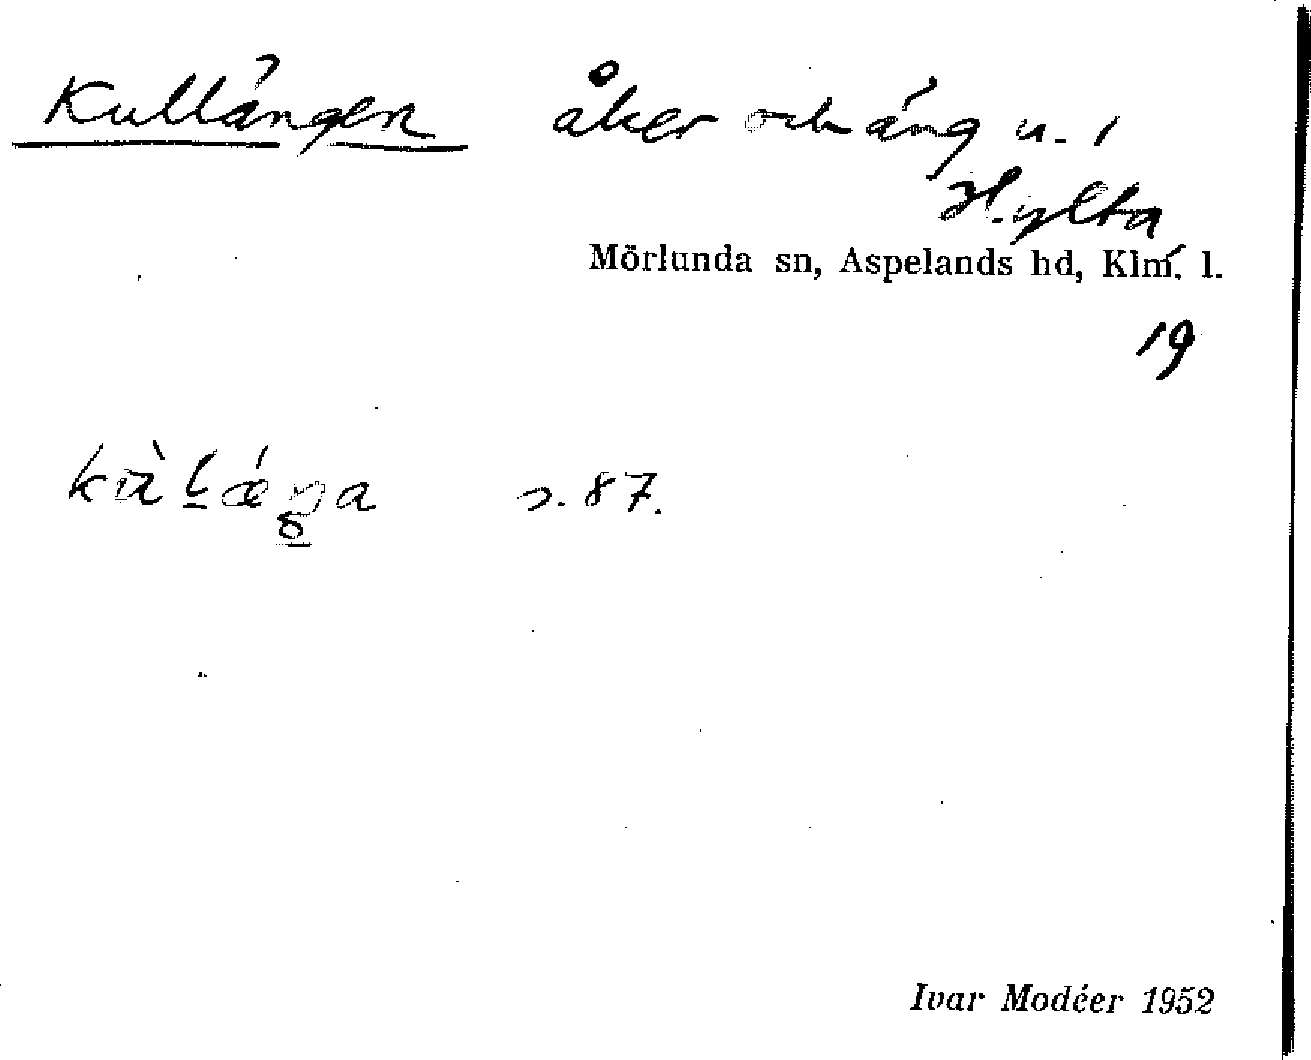 Kullängen åker och äng u. i
Hylta
Mörlunda sn, Aspelands hd, Klm. l.
19
s. 87.
Ivar Modéer 1952